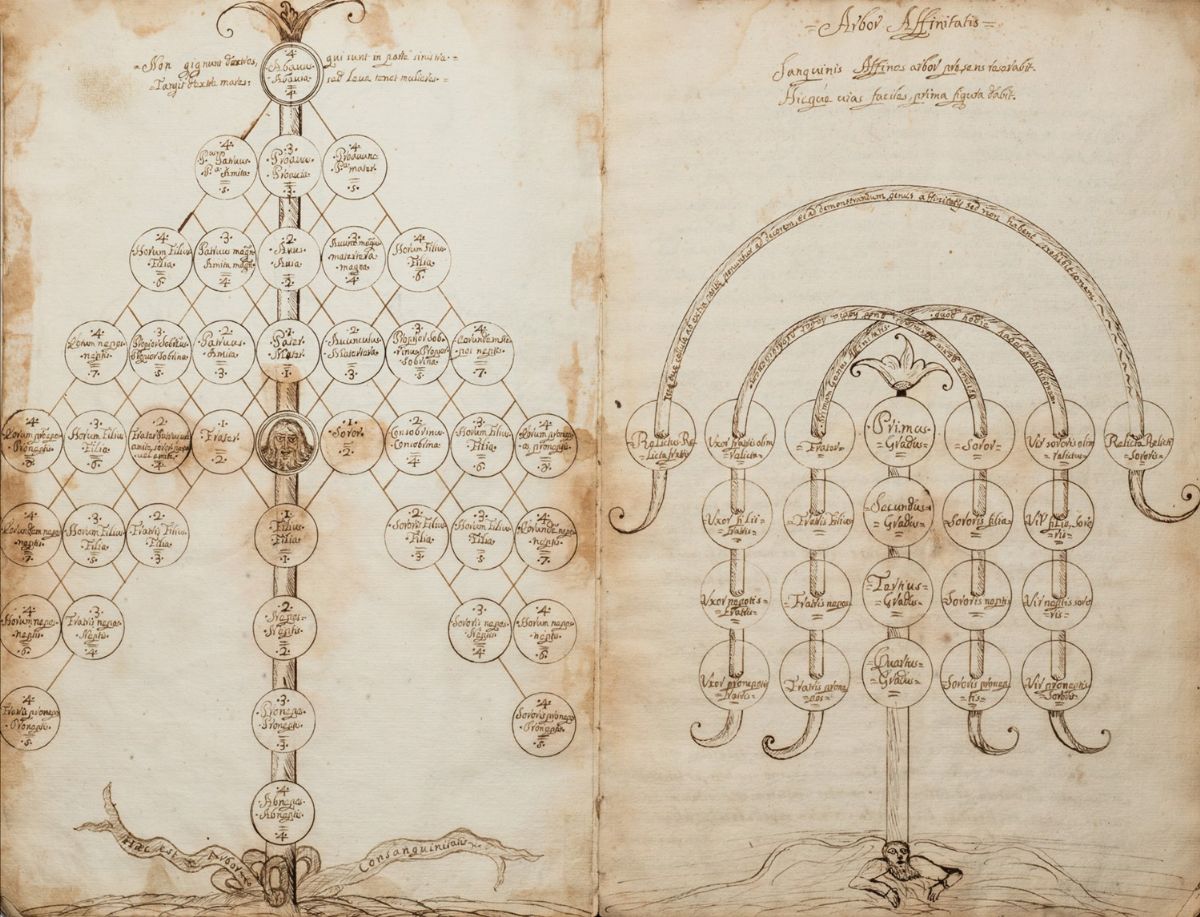 Non gignunt dextros, qui sunt in parte sinistra
Tangit dextra mares; sed leva tenet mulieres
4
Abavus
Abavia
4
4
Patruus
Amita
5
3
Proavus
Proavia
3
4
Proavunc
mater
5
4
Horum Filius
Filia
6
3
Patruus mag
Amita mag
4
2
Avus
Avia
2
3
Avunc magn
matertera
magna
4
4
Horum Filius
Filia
6
4
nepos
neptis
7
3
Propior Sobrinus
Propior Sobrina
5
2
Patruus
Amita
3
1
Pater
Mater
1
2
Avunculus
Matertera
3
3
Propior Sob
rinus Propior
Sobrina
5
4
Eorundem Ne
pos neptis
7
4
Eorum pronepos
Proneptis
8
3
Horum Filius
Filia
6
2
4
1
Frater
2
1
Soror
2
2
Consobrinus
Consobrina
4
3
Horum Filius
Filia
6
4
Eorum pronep
os proneptis
8
4
Eorundem nepos
neptis
7
3
Horum Filius
Filia
5
2
Fratris Filius
Filia
3
1
Filius
Filia
1
2
Sororis Filius
Filia
3
3
Horum Filius
Filia
5
4
nepos
neptis
7
4
Horum nepos
neptis
6
3
Fratris nepos
Neptis
4
2
Nepos
Neptis
2
3
Sororis nepos
Neptis
4
4
Horum nepos
neptis
6
4
Fratris pronepos
Proneptis
5
3
Pronepos
Proneptis
3
4
Sororis pronepos
Proneptis
5
4
Abnepos
Abneptis
4
Hæc est Arbor Consanguinitatis
Arbor Affinitatis
Sanguinis Affines arbor præsens reserabit.
Hicque vias faciles, prima figura dabit.
ad decorem, et ad demonstrandum genus affinitatis sed non habent prohibitionem
quod hodie habet prohibitionem
Primum Genus Affinitatis
Relictus Re
licta fratris
Uxor fratris olim
relicta
Frater
Primus
Gradus
Soror
Vir sororis olim
relictus
Relicta Relicti
Sororis
Uxor filii
fratris
Fratris Filia
Secundus
Gradus
Sororis filia
Vir filiæ Soro
ris
Uxor nepotis
fratris
Fratris nepos
Tertius
Gradus
Sororis neptis
Vir neptis soro
ris
Uxor pronepotis
Fratris
Fratris prone
pos
Quartus
Gradus
Sororis pronep
tis
Vir proneptis
Sororis